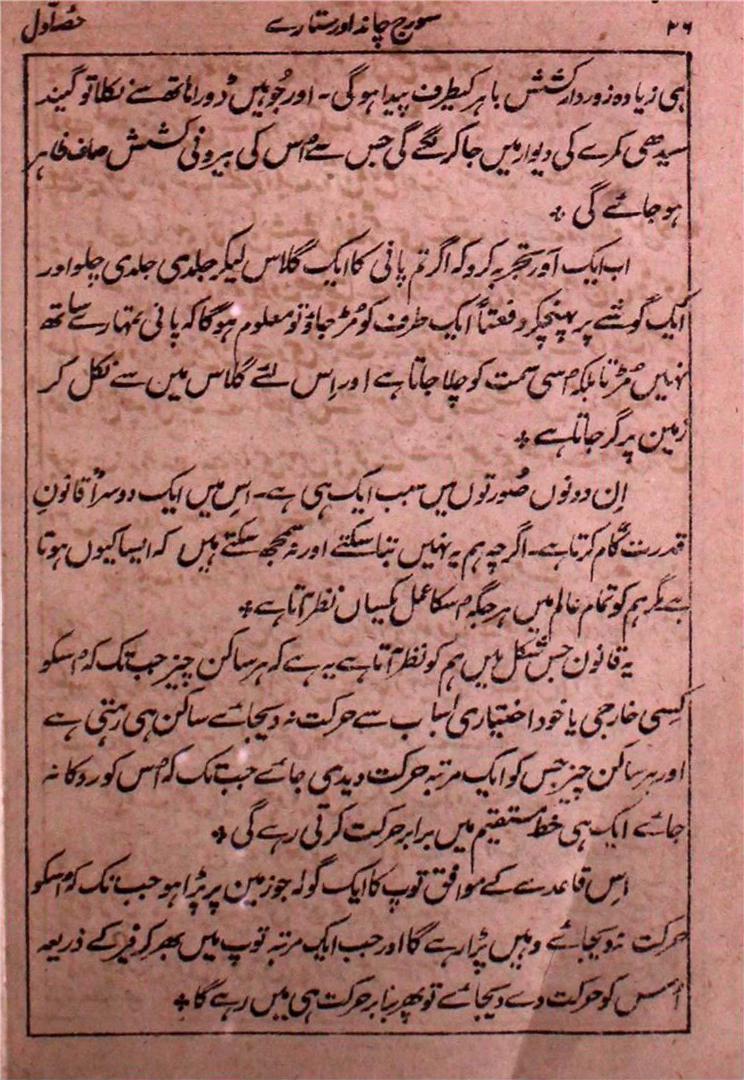 ۲۶ سورج چاند اور ستارے حصہ اول
ہی زیادہ زوردار کشش باہر کیطرف پیدا ہوگی۔ اور جُوہیں ڈورا ہاتھ سے نکلا تو گیند
سیدھی کمرے کی دیوار میں جا کر لگے گی جس سے اُس کی بیرونی کشش صاف ظاہر
ہو جائے گی ٭
اب ایک اَور تجربہ کرو کہ اگر تم پانی کا ایک گلاس لیکر جلدی جلدی چلو اور
ایک گوشے پر پہنچکر دفعتاً ایک طرف کو مُڑ جاؤ تو معلوم ہوگا کہ پانی تمہارے ساتھ
نہیں مُڑتا بلکہ اُسی سمت کو چلا جاتا ہے اور اِس لئے گلاس میں سے نکل کر
زمین پر گر جاتا ہے ٭
اِن دونوں صُورتوں میں سبب ایک ہی ہے۔ اس میں ایک دوسرا قانونِ
قدرت کام کرتا ہے۔ اگرچہ ہم یہ نہیں بتا سکتے اور نہ سمجھ سکتے ہیں کہ ایسا کیوں ہوتا
ہے مگر ہم کو تمام عالم میں ہر جگہ اُسکا عمل یکساں نظر آتا ہے ٭
یہ قانون جس شکل میں ہم کو نظر آتا ہے یہ ہے کہ ہر ساکن چیز جب تک کہ اُسکو
کِسی خارجی یا خود اختیاری اسباب سے حرکت نہ دیجائے ساکن ہی رہتی ہے
اور ہر ساکن چیز جس کو ایک مرتبہ حرکت دیدی جائے جب تک کہ اُس کو روکا نہ
جائے ایک ہی خط مستقیم میں برابر حرکت کرتی رہے گی ٭
اِس قاعدے کے موافق توپ کا ایک گولہ جو زمین پر پڑا ہو جب تک کہ اُسکو
حرکت نہ دیجائے وہیں پڑا رہے گا اور جب ایک مرتبہ توپ میں بھر کر فیر کے ذریعہ
اُس کو حرکت دے دیجائے تو پھر برابر حرکت ہی میں رہے گا ٭